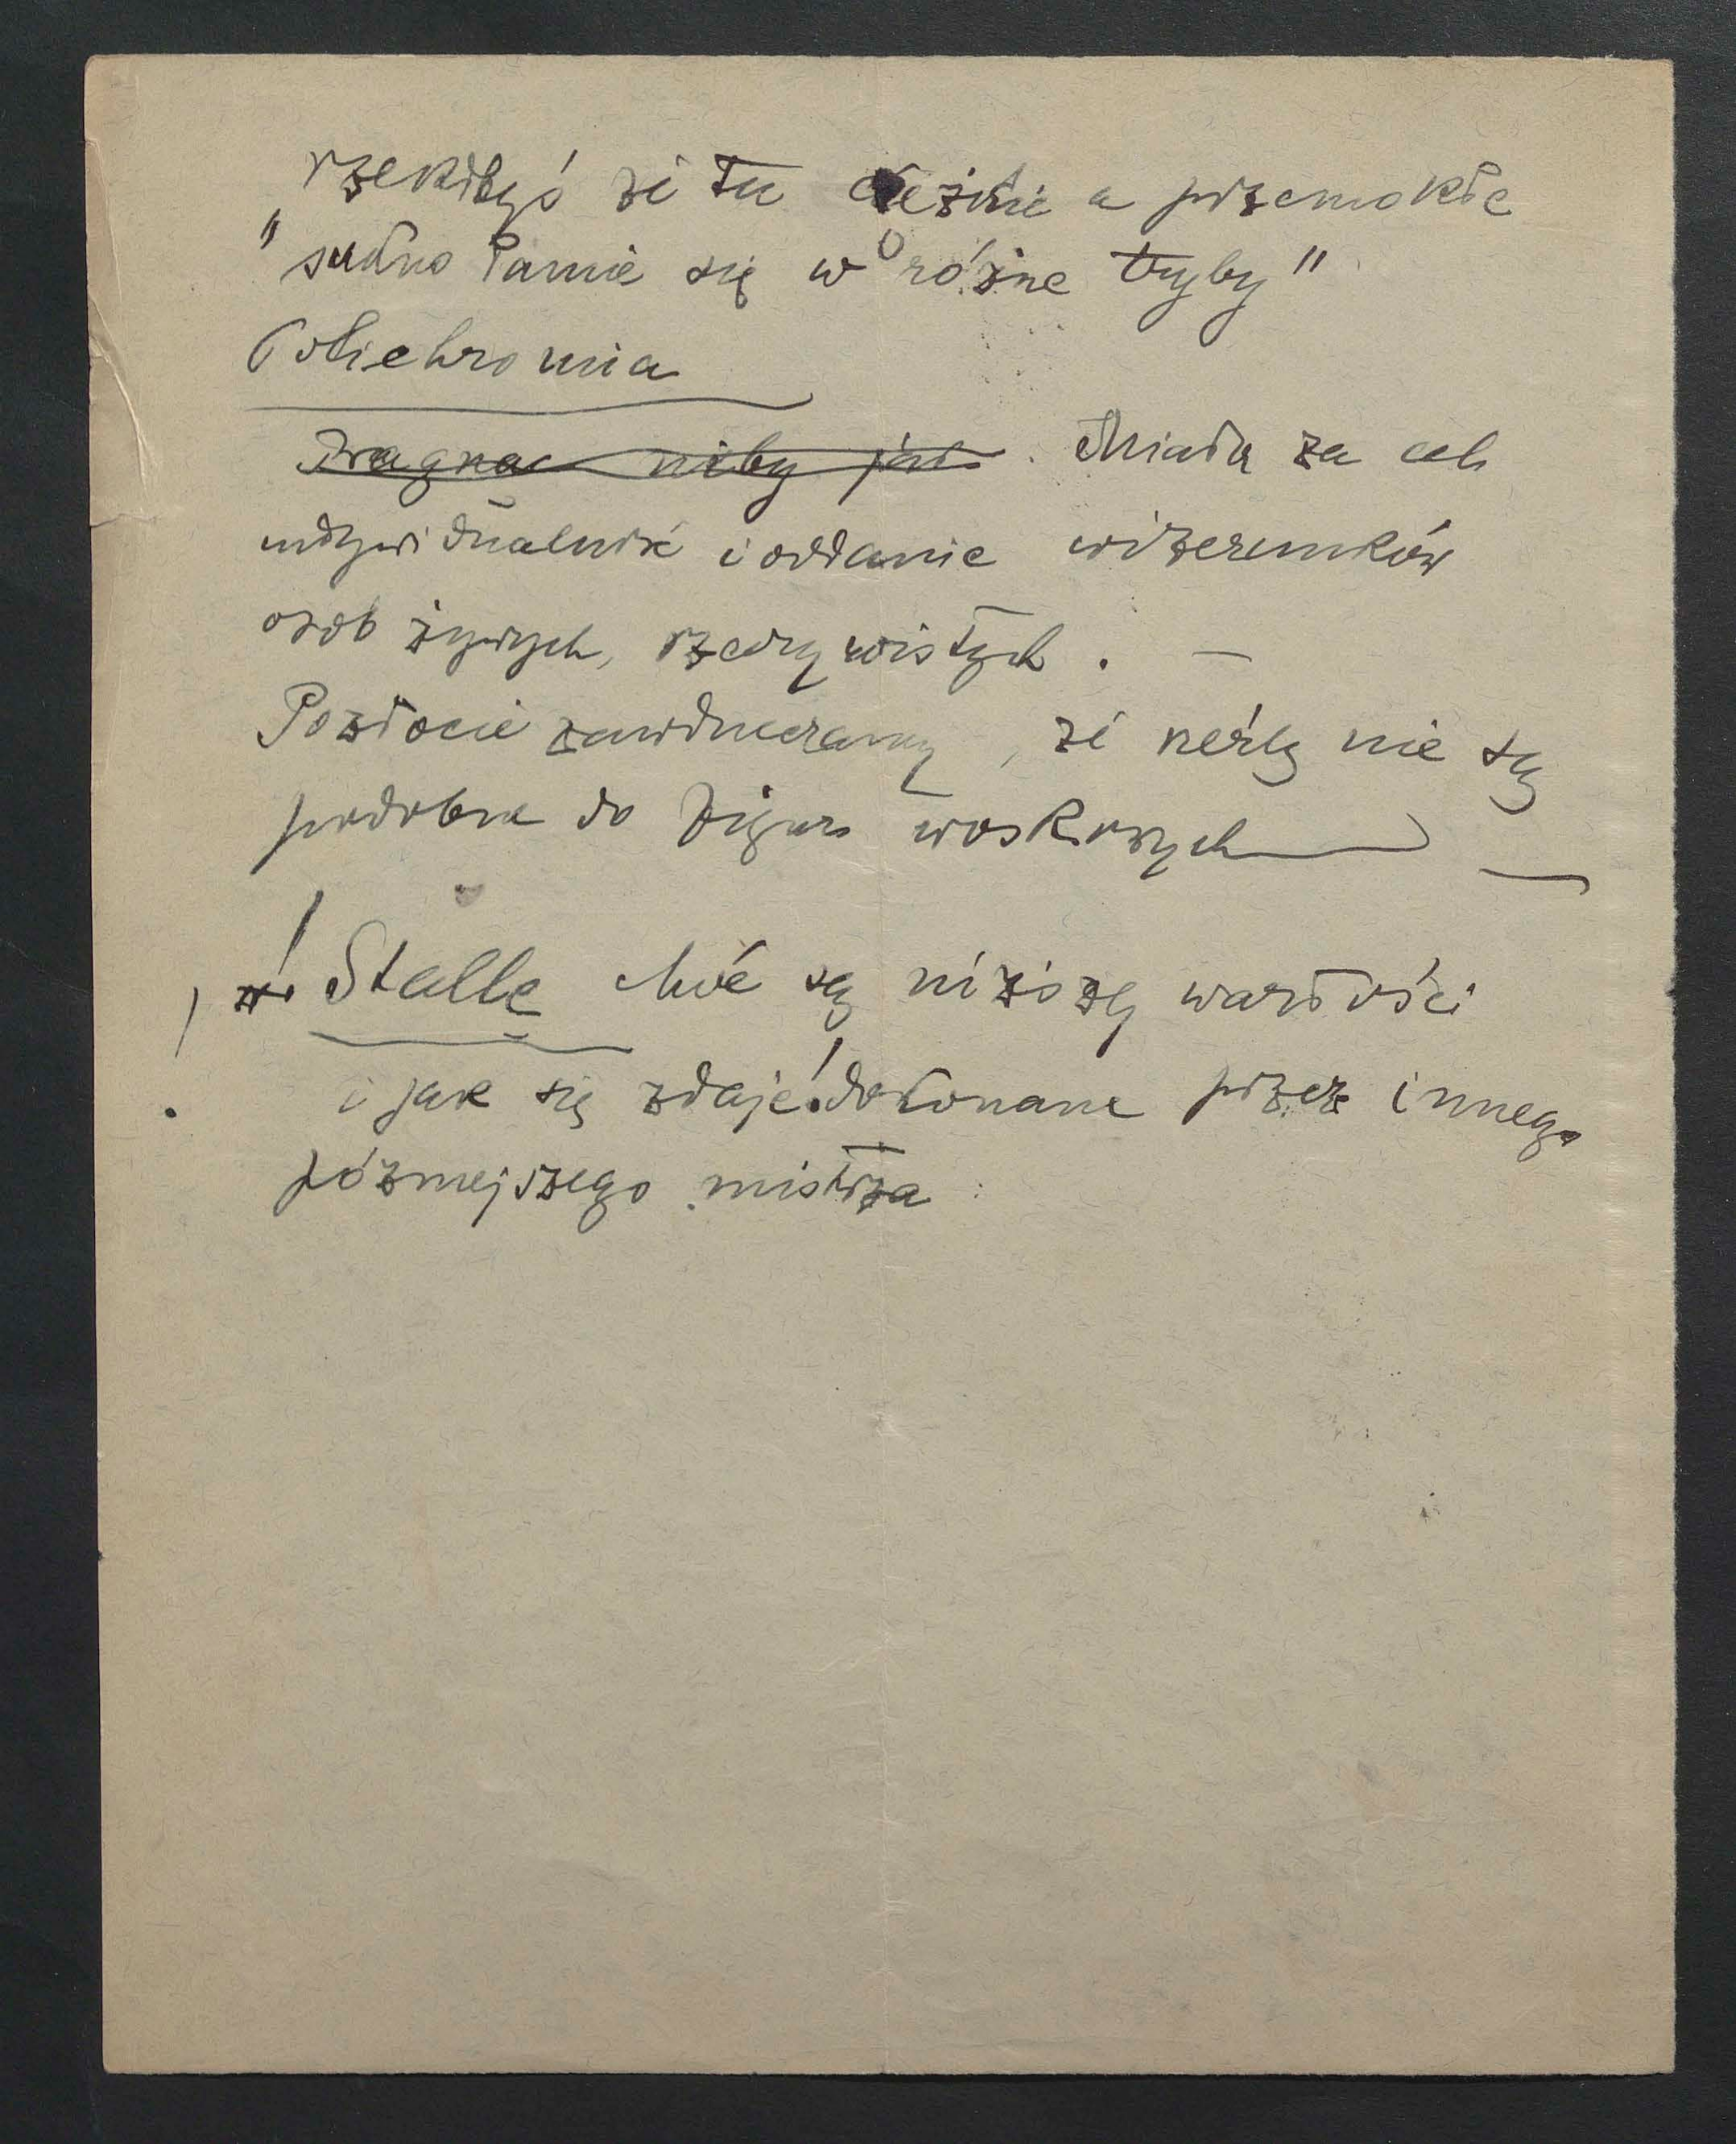 rzekłbyś że tu ciężkie a przemokłe
"sukno łamie się w różne tryby"
Polichromia
Pragnac niby jak. Miała za cel
indywidualność i oddanie wizerunków
osób żywych, rzeczywistych. —
Pozłocie zawdzięczamy, że rzeźby nie są
podobne do figur woskowych —
! Stalle choć są niższej wartości
i jak się zdaje! dokonane przez innego
późniejszego mistrza